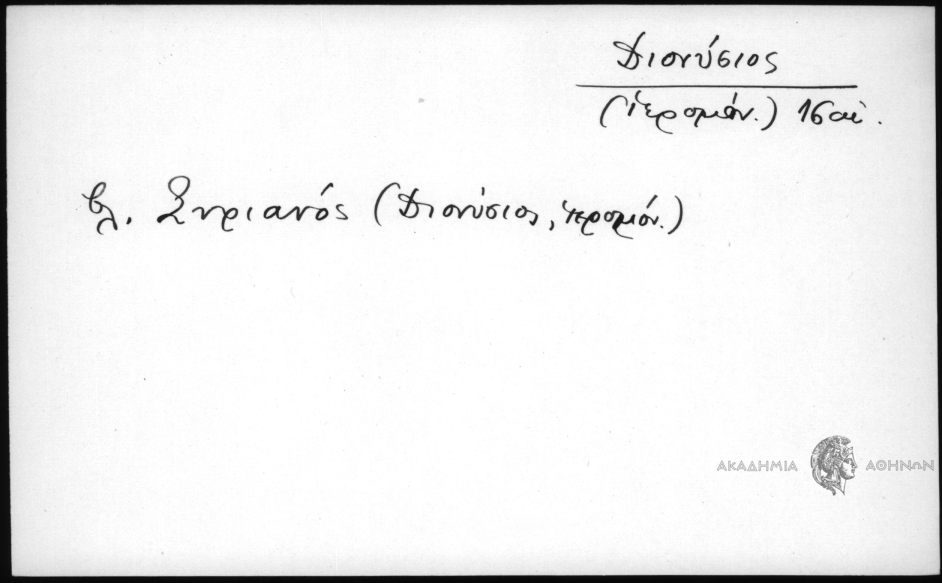 Διονύσιος
(ἱερομόν.) 16 αἰ.
βλ. Συριανός (Διονύσιος, ἱερομόν.)
ΑΚΑΔΗΜΙΑ ΑΘΗΝΩΝ